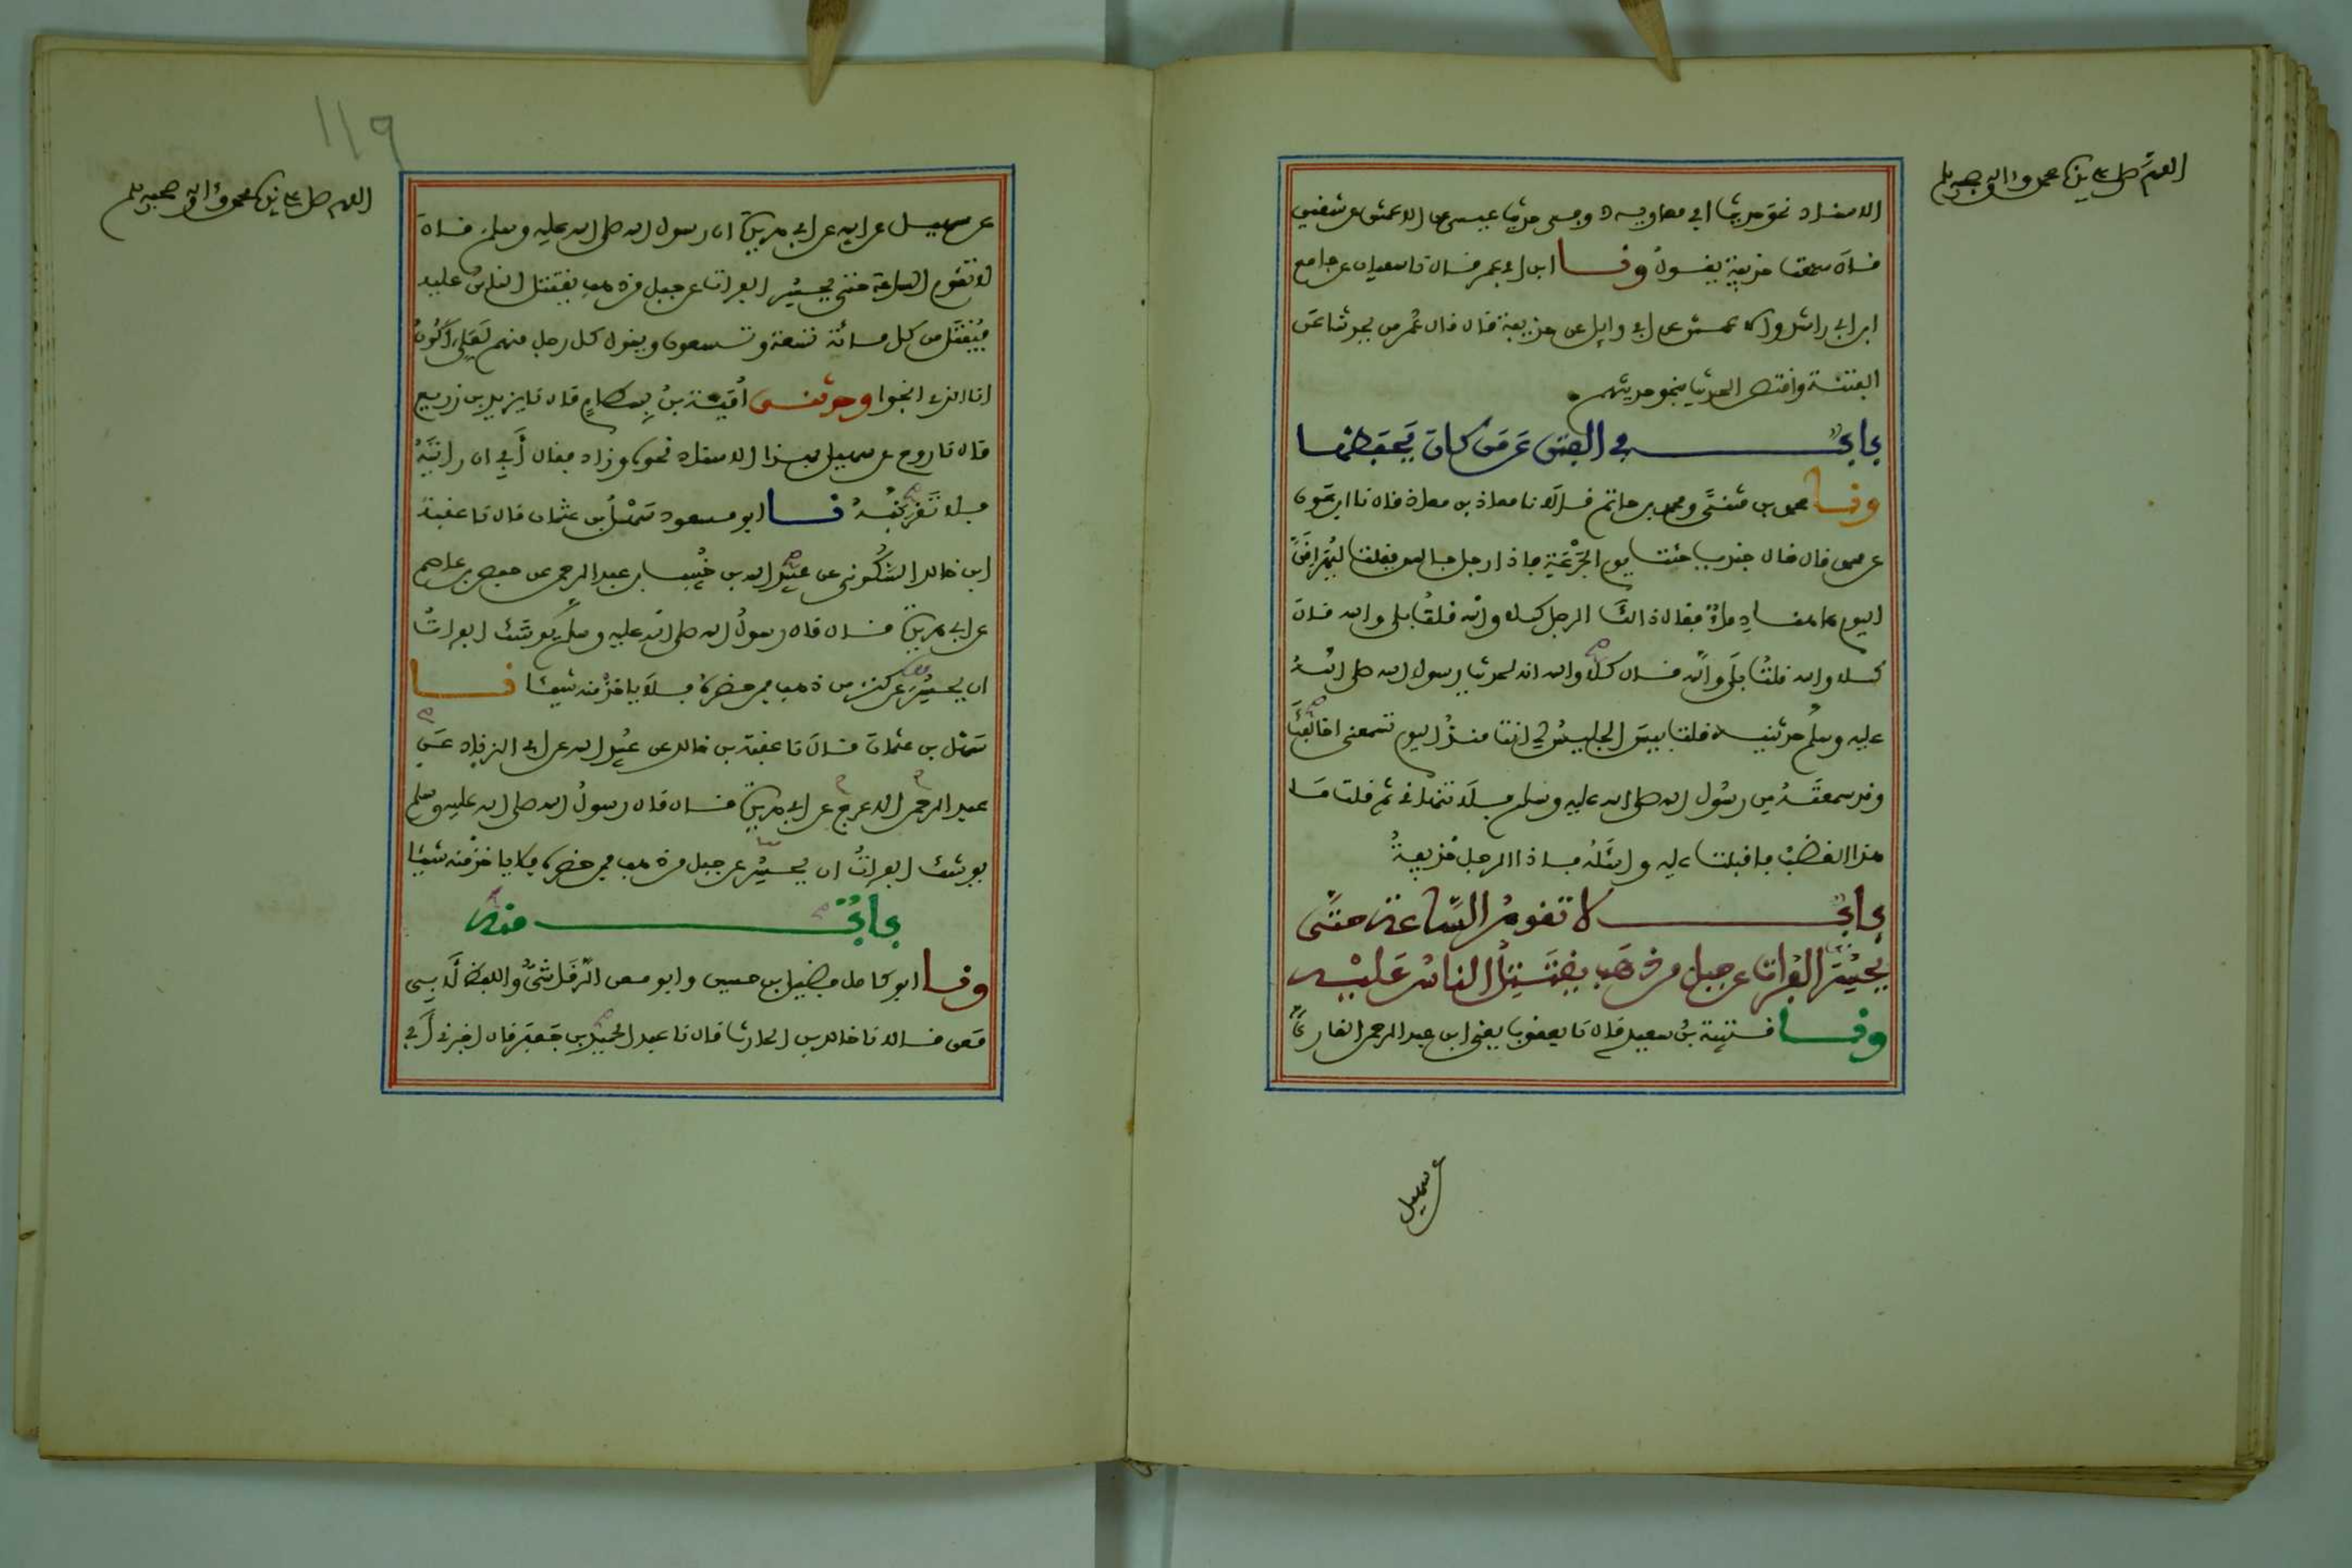 اللهم صل على سيدنا محمد وءاله وصحبه وسلم
الاسناد نحو حديث ابي معاوية وفي حديث عيسى عن الاعمش عن شقيق
قال سمعت حذيفة يقول ونا ابن ابي عمر قال نا سفيان عن جامع
ابن ابي راشد والاعمش عن ابي وايل عن حذيفة قال قال عمر من يحدثنا عن
الفتنة واقتص الحديث بنحو حديثهم
باب في الفتن عن من كان يحفظها
ونا محمد بن مثنى ومحمد بن حاتم قالا نا معاذ بن معاذ قال نا ابن عون
عن محمد قال قال جندب جئت يوم الجرعة فاذا رجل جالس فقلت ليهراقن
اليوم هاهنا دماء فقال ذاك الرجل كلا والله قلت بلى والله قال
كلا والله قلت بلى والله قال كلا والله انه لحديث رسول الله صلى الله
عليه وسلم حدثنيه قلت بيس الجليس لي انت منذ اليوم تسمعني اخالفك
وقد سمعته من رسول الله صلى الله عليه وسلم فلا تنهاني ثم قلت ما
هذا الغضب فاقبلت عليه واسئله فاذا الرجل حذيفة
باب لا تقوم الساعة حتى
يحسر الفرات عن جبل من ذهب يقتتل الناس عليه
ونا قتيبة بن سعيد قال نا يعقوب يعني ابن عبد الرحمن القاري
عن سهيل
119
اللهم صل على سيدنا محمد وءاله وصحبه وسلم
عن سهيل عن ابيه عن ابي هريرة ان رسول الله صلى الله عليه وسلم قال
لا تقوم الساعة حتى يحسر الفرات عن جبل من ذهب يقتتل الناس عليه
فيقتل من كل مائة تسعة وتسعون ويقول كل رجل منهم لعلي اكون
انا الذي انجوا وحدثني امية بن بسطام قال نا يزيد بن زريع
قال نا روح عن سهيل بهذا الاسناد نحوه وزاد فقال أبي ان رايته
فلا تقربنه نا ابو مسعود سهل بن عثمان قال نا عقبة
ابن خالد السكوني عن عبيد الله عن خبيب بن عبد الرحمن عن حفص بن عاصم
عن ابي هريرة قال قال رسول الله صلى الله عليه وسلم يوشك الفرات
ان يحسر عن كنز من ذهب فمن حضره فلا ياخذ منه شيئا نا
سهل بن عثمان قال نا عقبة بن خالد عن عبيد الله عن ابي الزناد عن
عبد الرحمن الاعرج عن ابي هريرة قال قال رسول الله صلى الله عليه وسلم
يوشك الفرات ان يحسر عن جبل من ذهب فمن حضره فلا ياخذ منه شيئا
باب منه
ونا ابو كامل فضيل بن حسين وابو معن الرقاشي واللفظ لابي
معن قالا نا خالد بن الحارث قال نا عبد الحميد بن جعفر قال اخبرني أبي